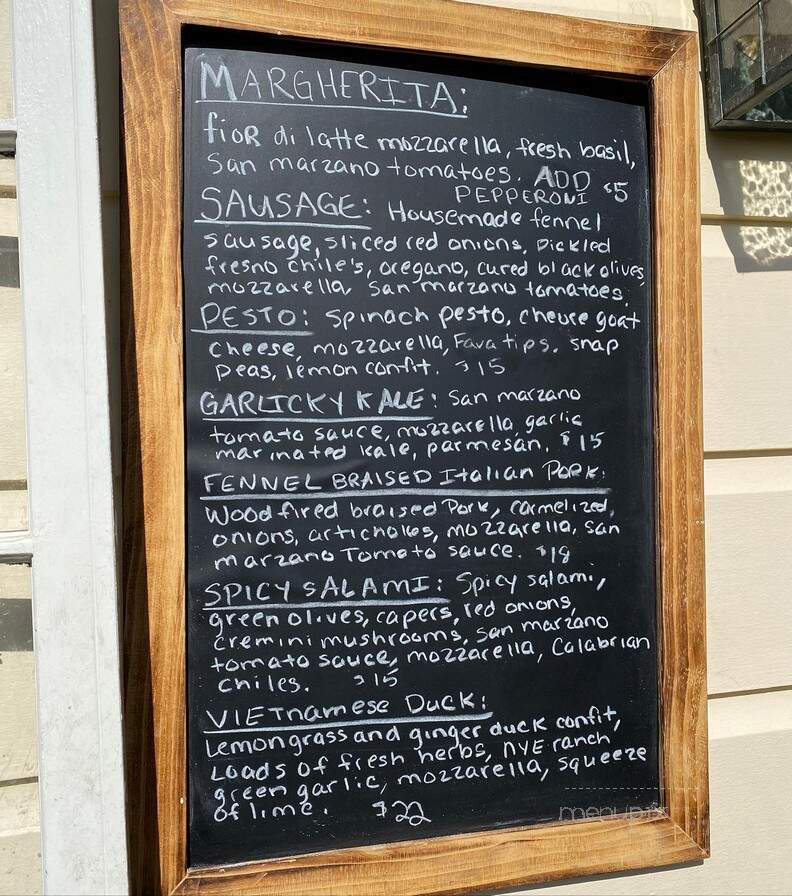 MARGHERITA:
fior di latte mozzarella, fresh basil,
San marzano tomatoes. ADD
PEPPERONI $5
SAUSAGE: Housemade fennel
sausage, sliced red onions, pickled
fresno chile's, oregano, cured black olives,
mozzarella, San marzano tomatoes,
PESTO: Spinach pesto, chevre goat
cheese, mozzarella, Fava tips, snap
peas, lemon confit. $15
GARLICKY KALE: San marzano
tomato sauce, mozzarella, garlic
marinated kale, parmesan, $15
FENNEL BRAISED Italian Pork:
Wood fired braised Pork, carmelized,
onions, artichokes, mozzarella, san
marzano Tomato sauce. $18
SPICY SALAMI: Spicy salami,
green olives, capers, red onions,
cremini mushrooms, san marzano
tomato sauce, mozzarella, Calabrian
chiles. $15
VIETnamese Duck:
Lemongrass and ginger duck confit,
Loads of fresh herbs, NYE ranch
green garlic, mozzarella, squeeze
of lime. $22